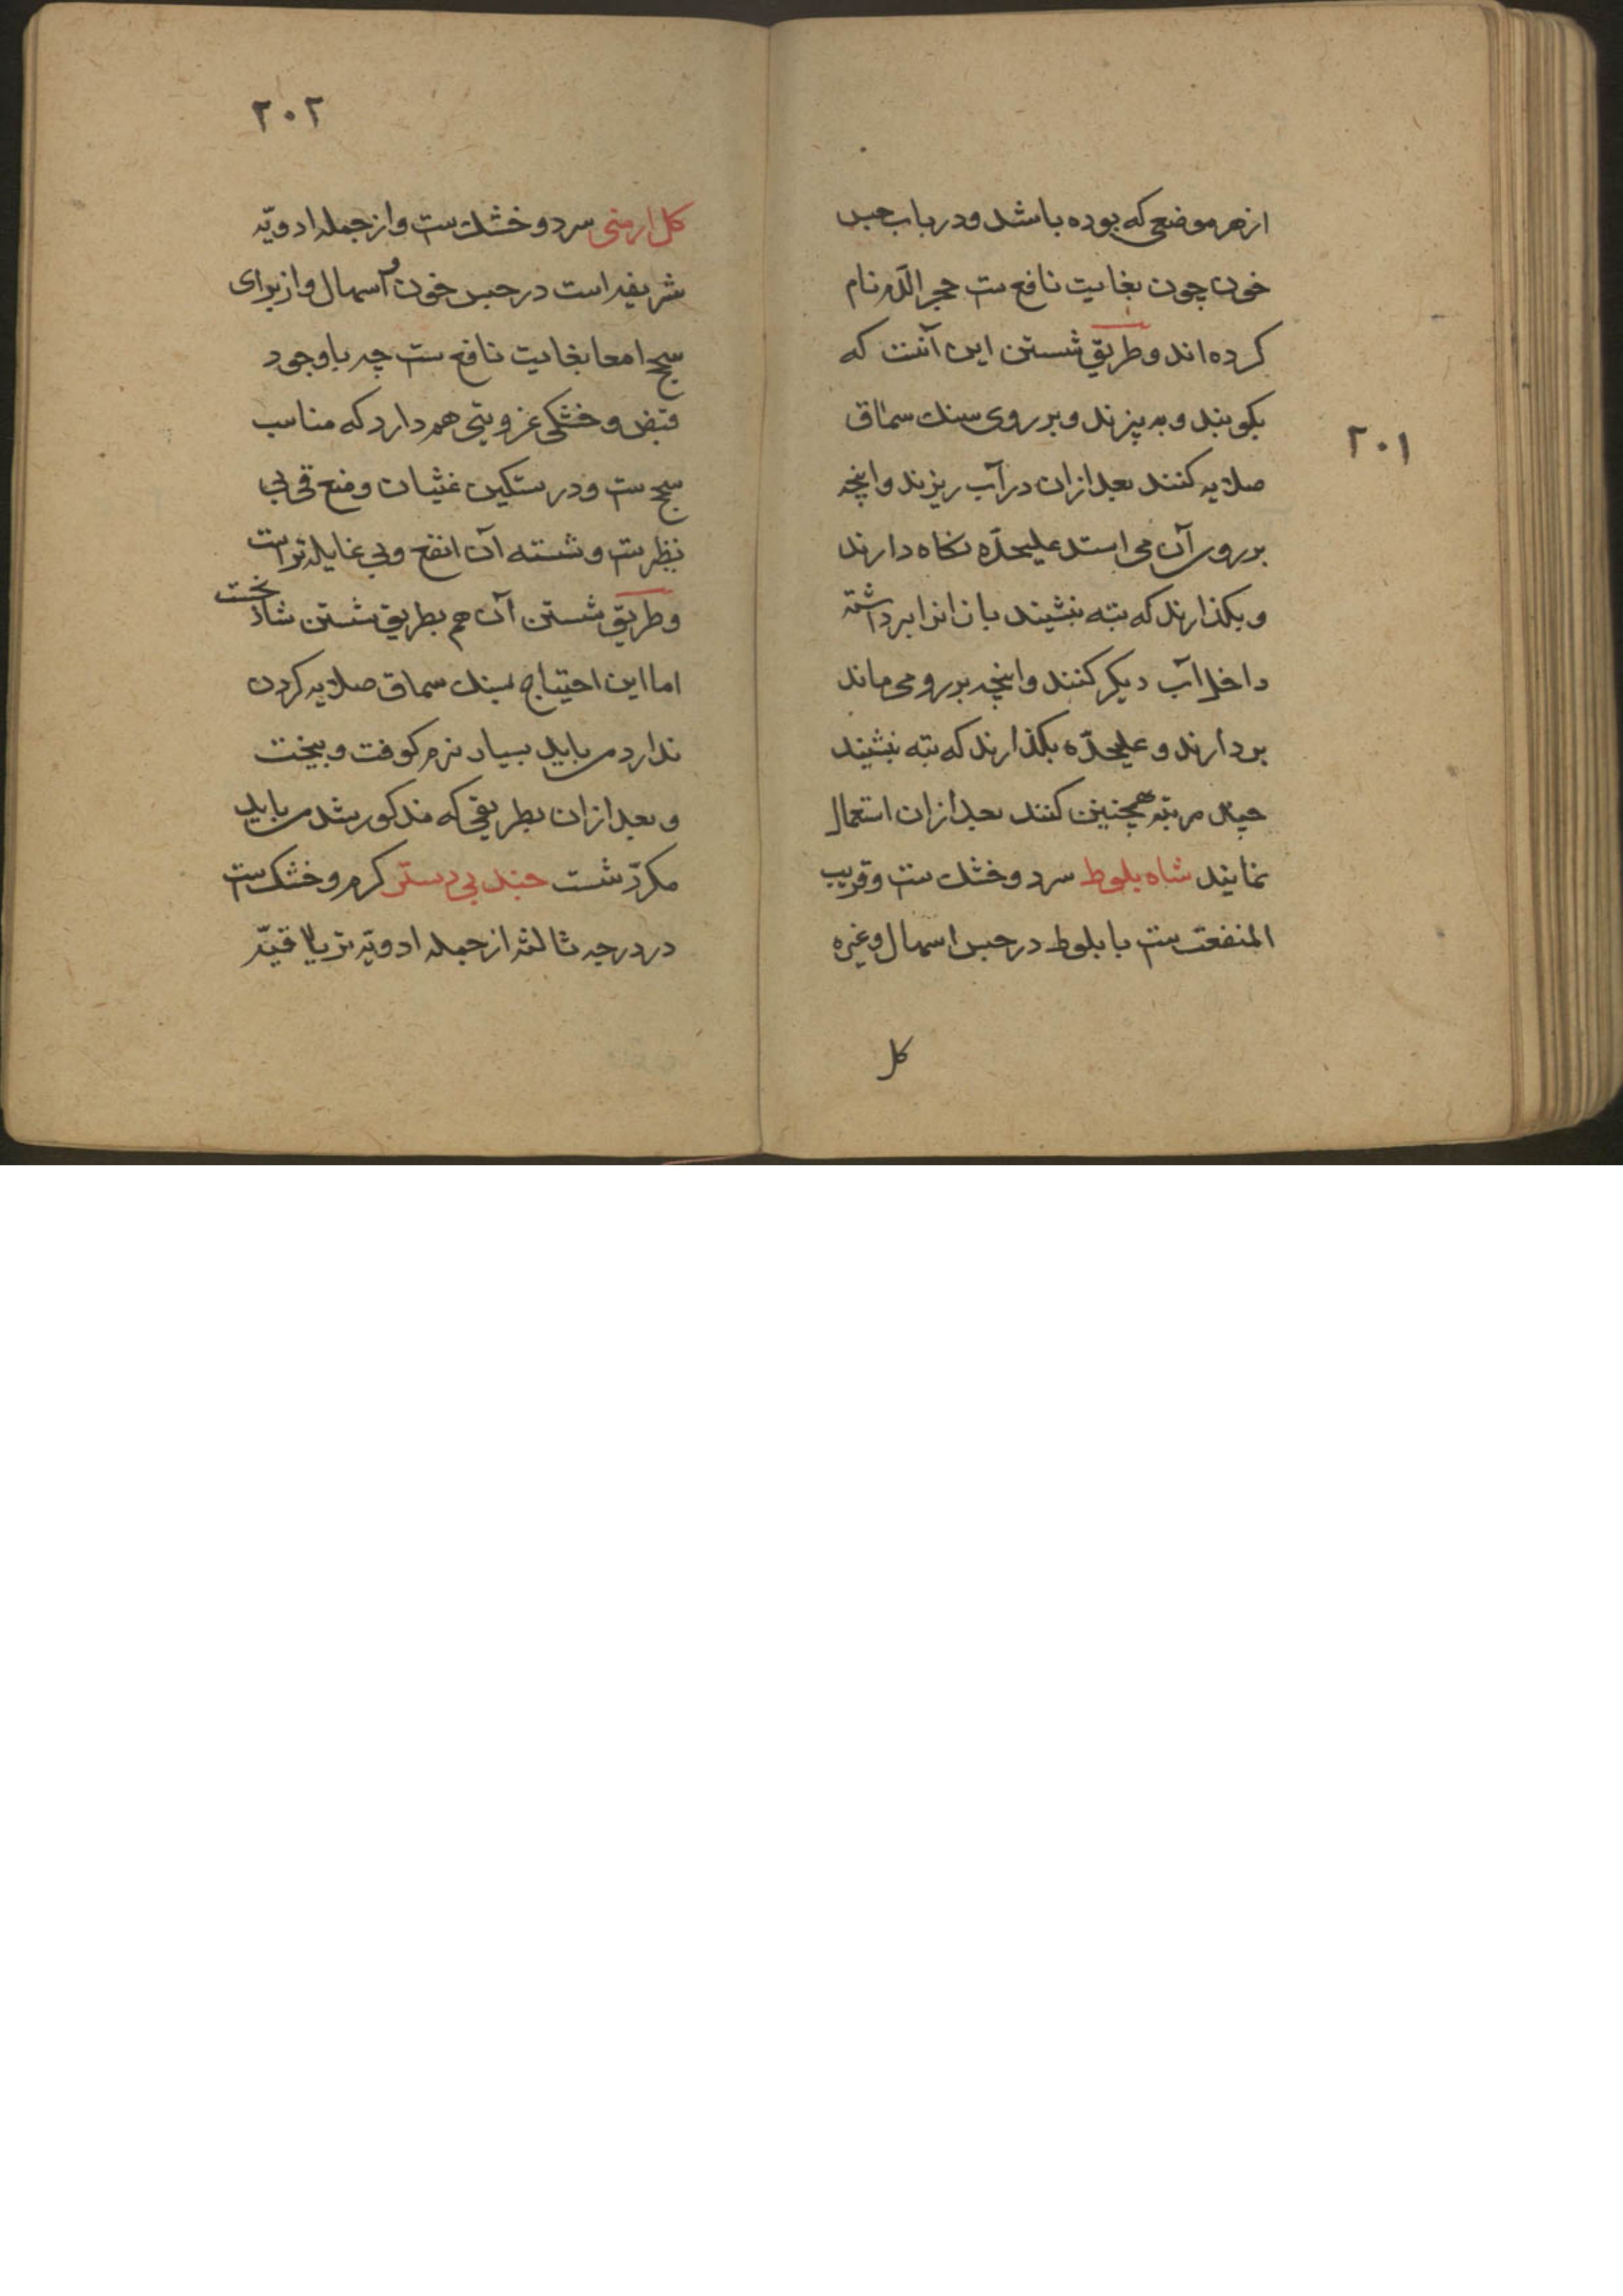 ۲۰۱
از هر موضعی که بوده باشد و در باب حبس
خون چون بغایت نافع ست حجر الدّم نام
کرده اند و طریق شستن این آنست که
بکوبند و به پزند و بر روی سنك سماق
صلایه کنند بعد ازان در آب ریزند و انچه
بر روی آن می استد علیحدّه نکاه دارند
و بکذارند که بته بنشیند بازانرا برداشته
داخل آب دیکر کنند و انچه بر رو می ماند
بردارند و علیحدّه بکذارند که بته بنشیند
چهار مرتبه همچنین کنند بعد ازان استعمال
نمایند شاه بلوط سرد و خشك ست و قریب
المنفعت ست با بلوط در حبس اسهال وغیره
کل
۲۰۲
کل ارمنی سرد و خشك ست و از جمله ادویّه
شریفه است در حبس خون و اسهال و از برای
سحج امعا بغایت نافع ست چه با وجود
قبض و خشکی غرویتی هم دارد که مناسب
سحج ست و در تسکین غثیان و منع قی بی
نظیر ست و شسته آن انفع و بی غایله تر است
و طریق شستن آن هم بطریق شستن شاذنخست
اما این احتیاج بسنك سماق صلایه کردن
ندارد می باید بسیار نرم کوفت و بیخت
و بعد ازان بطریقی که مذکور شد می باید
مکرّر شست جند بی دستر کرم و خشك ست
در درجه ثالثه از جمله ادویّه تریاقیّه